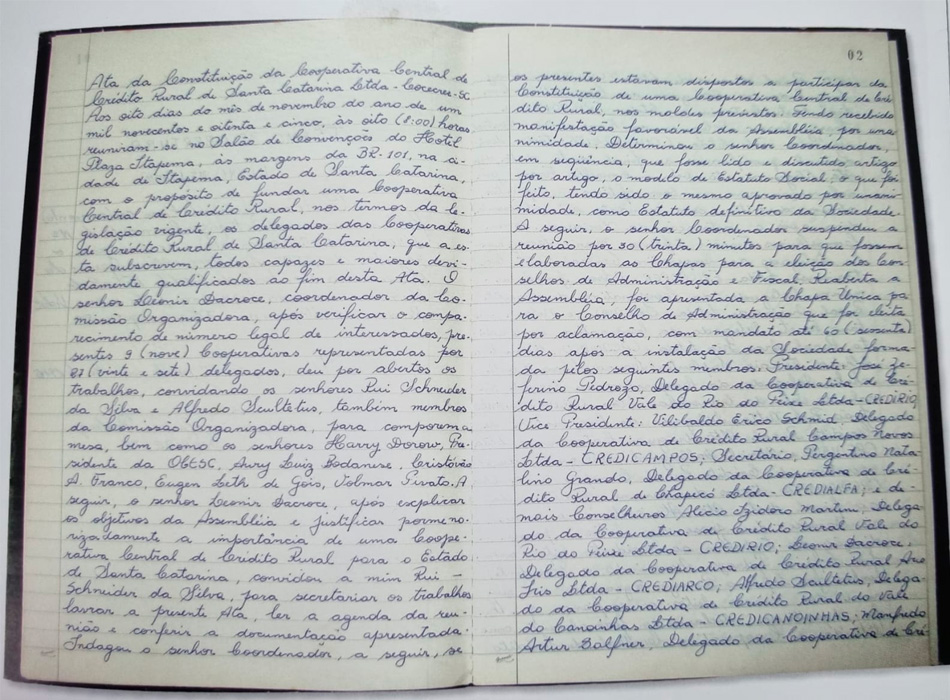 Ata da Constituição da Cooperativa Central de
Crédito Rural de Santa Catarina Ltda - Cocecrer-SC
Aos oito dias do mês de novembro do ano de um
mil novecentos e oitenta e cinco, às oito (8:00) horas
reuniram-se no Salão de Convenções do Hotel
Plaza Itapema, às margens da BR-101, na ci-
dade de Itapema, Estado de Santa Catarina,
com o propósito de fundar uma Cooperativa
Central de Crédito Rural, nos termos da le-
gislação vigente, os delegados das Cooperativas
de Crédito Rural de Santa Catarina, que a es-
ta subscrevem, todos capazes e maiores devi-
damente qualificados ao fim desta Ata. O
senhor Leonir Dacroce, coordenador da Co-
missão Organizadora, após verificar o compa-
recimento de número legal de interessados, pre-
sentes 9 (nove) Cooperativas representadas por
27 (vinte e sete) delegados, deu por abertos os
trabalhos, convidando os senhores Rui Schneider
da Silva e Alfredo Scultetus, também membros
da Comissão Organizadora, para comporem a
mesa, bem como os senhores Harry Dorow, Pre-
sidente da OCESC, Aury Luiz Bodanese, Cristóvão
A. Franco, Eugen Leth de Góis, Volmar Pivato. A
seguir, o senhor Leonir Dacroce, após explicar
os objetivos da Assembléia e justificar pormeno-
rizadamente a importância de uma Coope-
rativa Central de Crédito Rural para o Estado
de Santa Catarina, convidou a mim Rui -
Schneider da Silva, para secretariar os trabalhos
lavrar a presente Ata, ler a agenda da reu-
nião e conferir a documentação apresentada.
Indagou o senhor Coordenador, a seguir, se
02
os presentes estavam dispostos a participar da
Constituição de uma Cooperativa Central de Cré-
dito Rural, nos moldes previstos. Tendo recebido
manifestação favorável da Assembléia, por una
nimidade, Determinou o senhor Coordenador,
em seqüência, que fosse lido e discutido artigo
por artigo, o modelo de Estatuto Social, o que foi
feito, tendo sido o mesmo aprovado por unani
midade, como Estatuto definitivo da Sociedade.
A seguir, o senhor Coordenador suspendeu a
reunião por 30 (trinta) minutos para que fossem
elaboradas as Chapas para a eleição dos Con-
selhos de Administração e Fiscal. Reaberta a
Assembléia, foi apresentada a Chapa Única pa
ra o Conselho de Administração que foi eleita
por aclamação, com mandato até 60 (sessenta)
dias após a instalação da Sociedade forma-
da pelos seguintes membros: Presidente José Ze-
ferino Pedrozo, Delegado da Cooperativa de Cré-
dito Rural Vale do Rio do Peixe Ltda-CREDIRIO,
Vice Presidente: Vilibaldo Erico Schmid, Delegado
da Cooperativa de Crédito Rural Campos Novos
Ltda - CREDICAMPOS; Secretário, Pergentino Nata-
lino Grando, Delegado da Cooperativa de Cré-
dito Rural de Chapecó Ltda - CREDIALFA; e de-
mais Conselheiros Alécio Izidoro Martini, Delega
do da Cooperativa de Crédito Rural Vale do
Rio do Peixe Ltda - CREDIRIO; Leonir Dacroce.
Delegado da Cooperativa de Crédito Rural Arco
Iris Ltda - CREDIARCO; Alfredo Scultetus, Delega-
do da Cooperativa de Crédito Rural do Vale
do Canoinhas Ltda - CREDICANOINHAS; Manfredo
Artur Dalfner, Delegado da Cooperativa de Cré